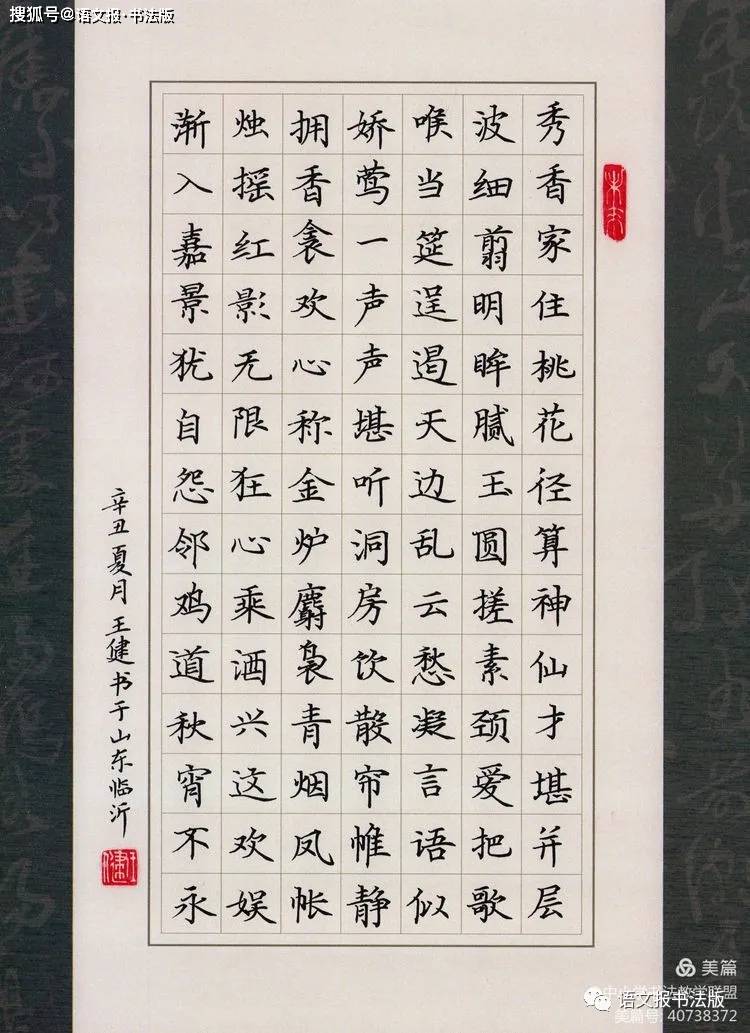 搜狐号@语文报·书法版
秀香家住桃花径算神仙才堪并层
波细翦明眸腻玉圆搓素颈爱把歌
喉当筵逞遏天边乱云愁凝言语似
娇莺一声声堪听洞房饮散帘帷静
拥香衾欢心称金炉麝袅青烟凤帐
烛摇红影无限狂心乘酒兴这欢娱
渐入嘉景犹自怨邻鸡道秋宵不永
辛丑夏月王健书于山东临沂
美篇
语文报书法版
美篇号: 40738372